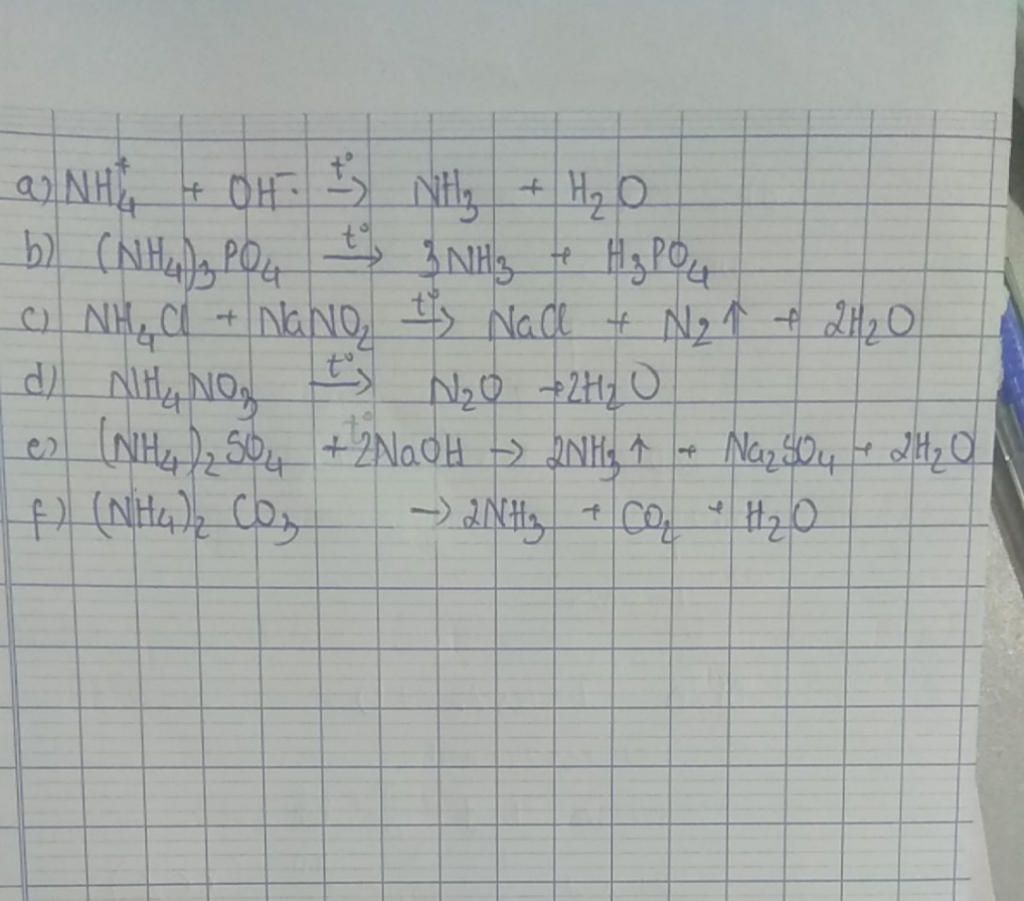 a) NH₄⁺ + OH⁻ t°→ NH₃ + H₂O
b) (NH₄)₃PO₄ t°→ 3NH₃ + H₃PO₄
c) NH₄Cl + NaNO₂ t°→ NaCl + N₂↑ + 2H₂O
d) NH₄NO₃ t°→ N₂O + 2H₂O
e) (NH₄)₂SO₄ + 2NaOH → 2NH₃↑ + Na₂SO₄ + 2H₂O
f) (NH₄)₂CO₃ → 2NH₃ + CO₂ + H₂O